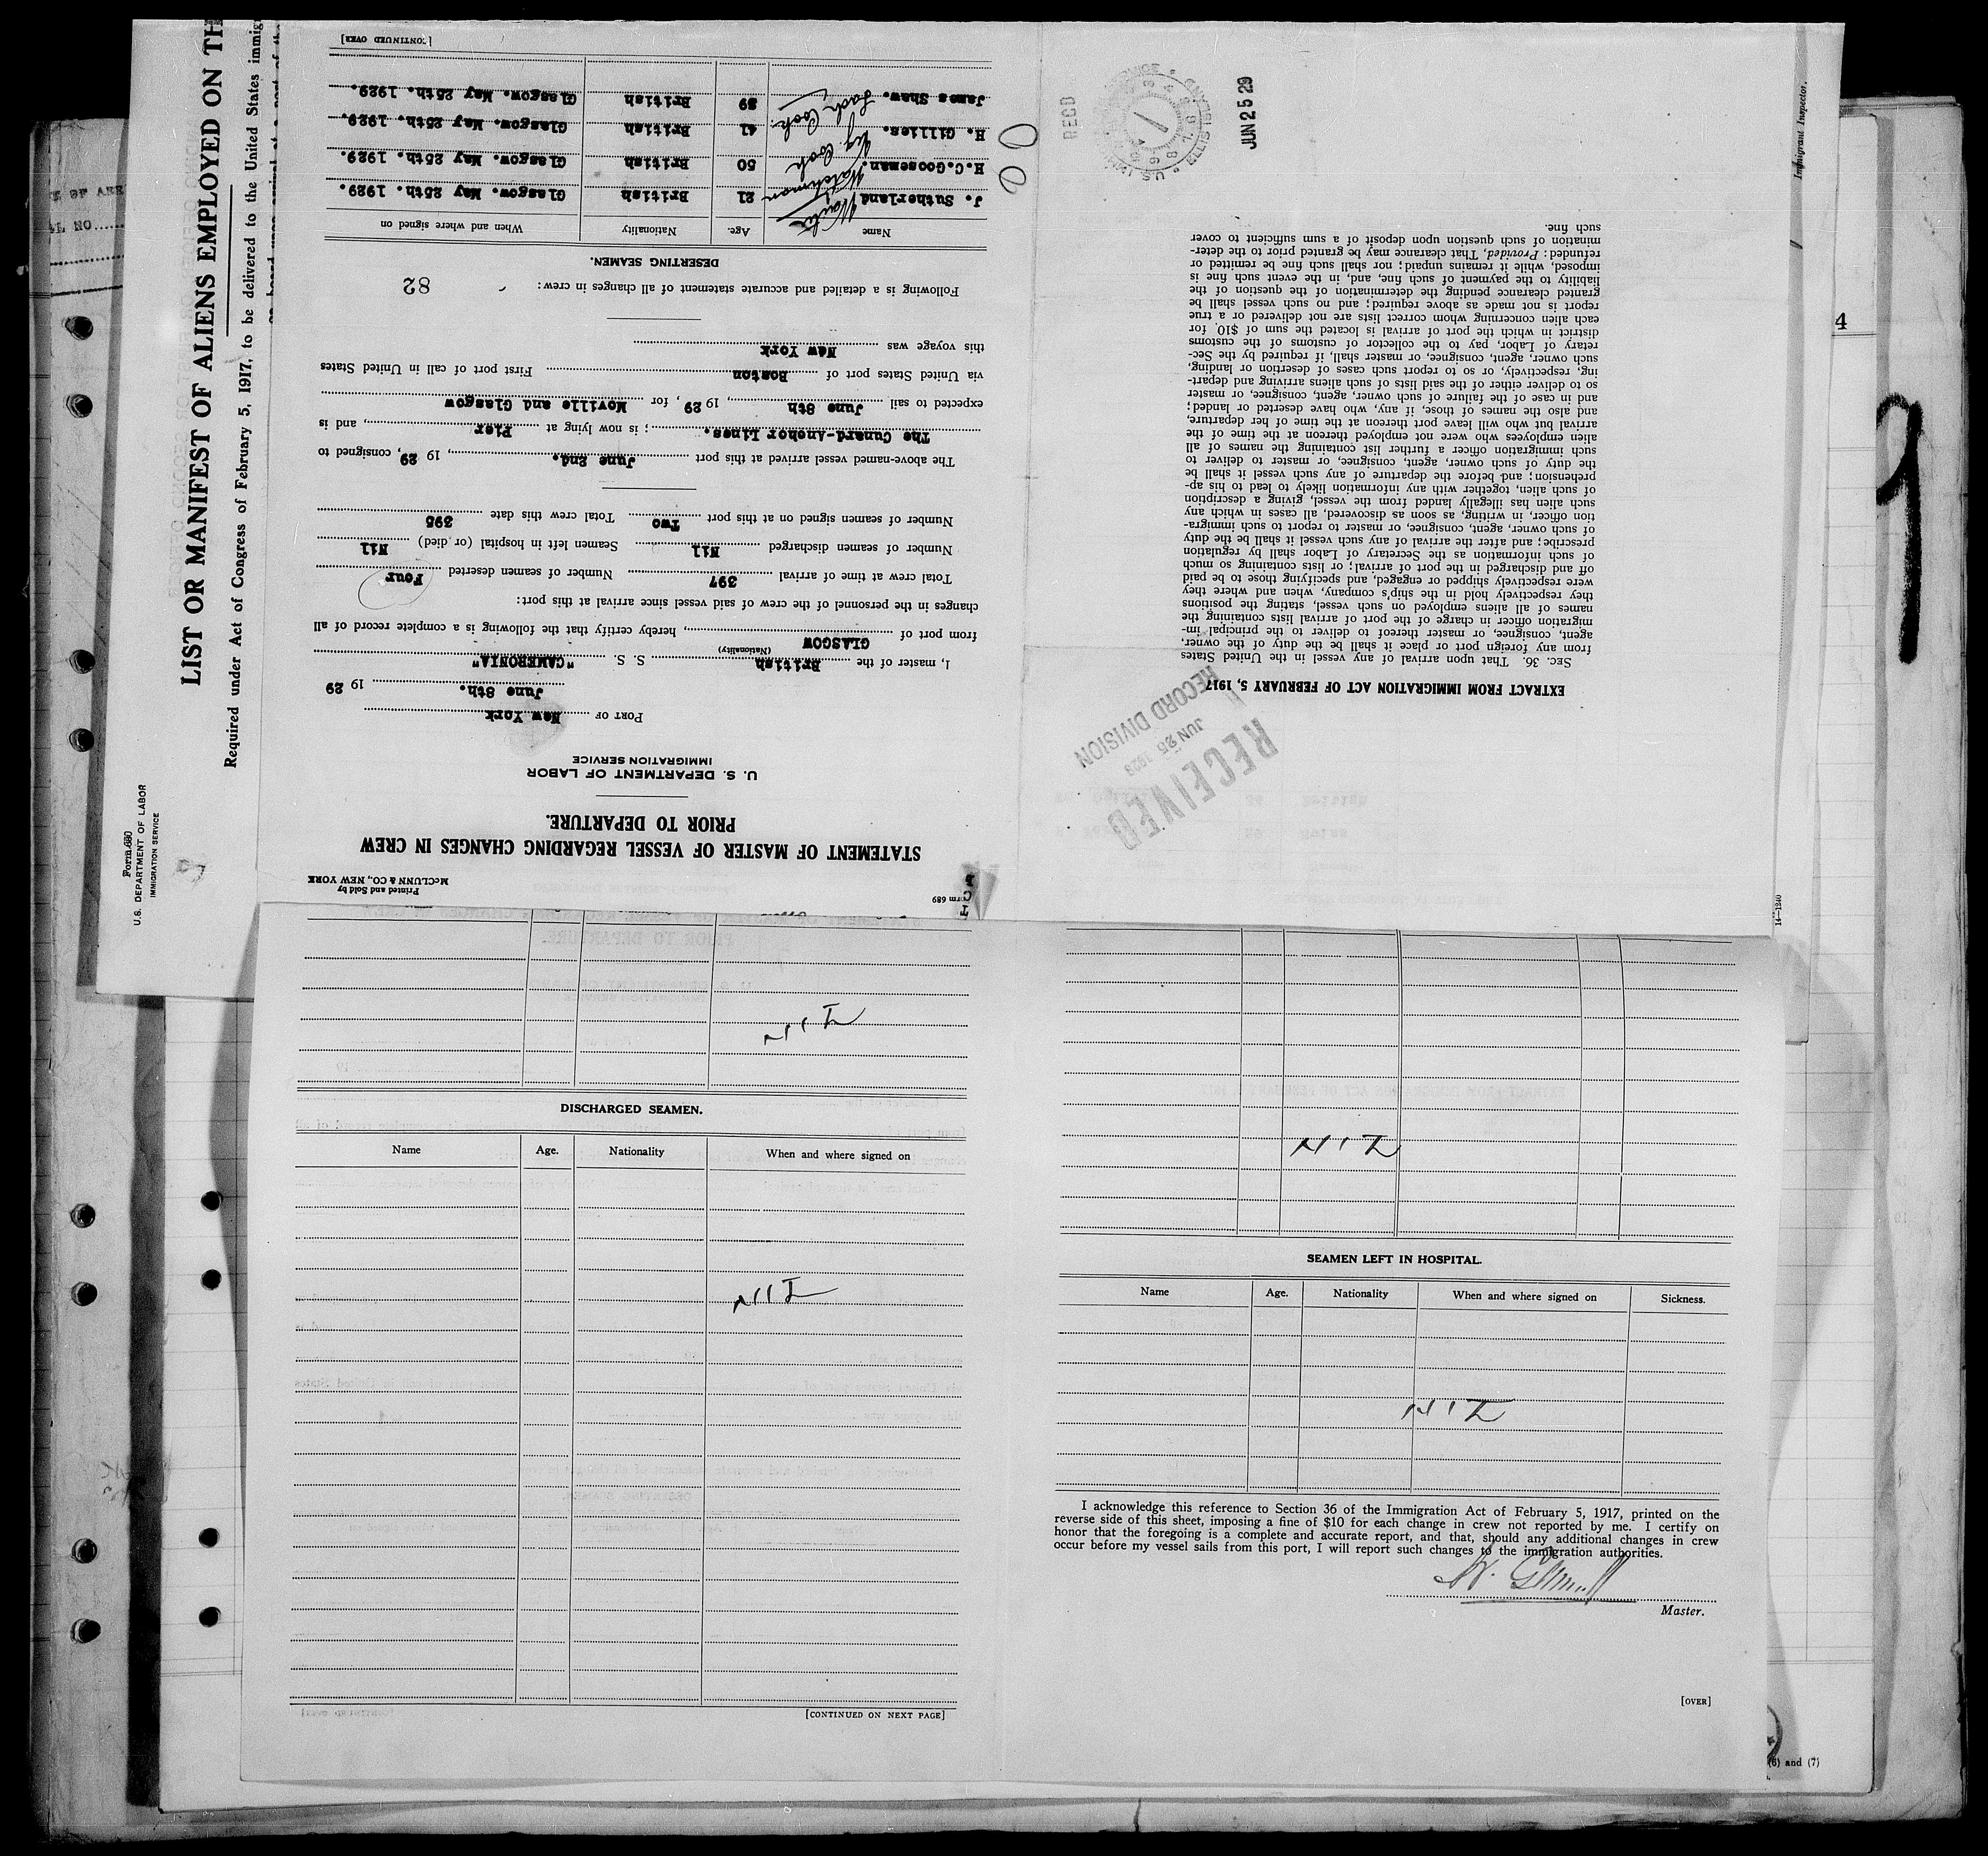 Form 689
Printed and Sold by
McCLUNN & CO., NEW YORK
STATEMENT OF MASTER OF VESSEL REGARDING CHANGES IN CREW
PRIOR TO DEPARTURE.
U. S. DEPARTMENT OF LABOR
IMMIGRATION SERVICE
PORT OF New York
June 8th. 19 29
I, master of the British S. S. "CAMERONIA"
(Nationality)
from port of GLASGOW, hereby certify that the following is a complete record of all
changes in the personnel of the crew of said vessel since arrival at this port:
Total crew at time of arrival 397 Number of seamen deserted Four
Number of seamen discharged Nil Seamen left in hospital (or died) Nil
Number of seamen signed on at this port Two Total crew this date 395
The above-named vessel arrived at this port June 2nd., 19 29, consigned to
The Cunard-Anchor Lines.; is now lying at Pier, and is
expected to sail June 8th, 19 29, for Moville and Glasgow
via United States port of Boston First port of call in United States
this voyage was New York
Following is a detailed and accurate statement of all changes in crew: 82
DESERTING SEAMEN.
Name Age. Nationality When and where signed on
J. Sutherland Waiter 21 British Glasgow. May 25th. 1929.
H.C.Gooseman. Watchman 50 British Glasgow. May 25th. 1929.
H. Gillies. Veg. Cook 41 British Glasgow. May 25th. 1929.
James Shaw. Cook 39 British Glasgow. May 25th. 1929.
[CONTINUED OVER]
EXTRACT FROM IMMIGRATION ACT OF FEBRUARY 5, 1917
SEC. 36. That upon arrival of any vessel in the United States
from any foreign port or place it shall be the duty of the owner,
agent, consignee, or master thereof to deliver to the principal im-
migration officer in charge of the port of arrival lists containing the
names of all aliens employed on such vessel, stating the positions
they respectively hold in the ship's company, when and where they
were respectively shipped or engaged, and specifying those to be paid
off and discharged in the port of arrival; or lists containing so much
of such information as the Secretary of Labor shall by regulation
prescribe; and after the arrival of any such vessel it shall be the duty
of such owner, agent, consignee, or master to report to such immigra-
tion officer, in writing, as soon as discovered, all cases in which any
such alien has illegally landed from the vessel, giving a description
of such alien, together with any information likely to lead to his ap-
prehension; and before the departure of any such vessel it shall be
the duty of such owner, agent, consignee, or master to deliver to
such immigration officer a further list containing the names of all
alien employees who were not employed thereon at the time of the
arrival but who will leave port thereon at the time of her departure,
and also the names of those, if any, who have deserted or landed;
and in case of the failure of such owner, agent, consignee, or master
so to deliver either of the said lists of such aliens arriving and depart-
ing, respectively, or so to report such cases of desertion or landing,
such owner, agent, consignee, or master shall, if required by the Sec-
retary of Labor, pay to the collector of customs of the customs
district in which the port of arrival is located the sum of $10 for
each alien concerning whom correct lists are not delivered or a true
report is not made as above required; and no such vessel shall be
granted clearance pending the determination of the question of the
liability to the payment of such fine, and, in the event such fine is
imposed, while it remains unpaid; nor shall such fine be remitted or
refunded: Provided, That clearance may be granted prior to the deter-
mination of such question upon deposit of a sum sufficient to cover
such fine.
RECEIVED
JUN 25 1929
RECORD DIVISION
RECD
JUN 25 29
ELLIS ISLAND
Form 680
U.S. DEPARTMENT OF LABOR
IMMIGRATION SERVICE
LIST OR MANIFEST OF ALIENS EMPLOYED ON TH
Required under Act of Congress of February 5, 1917, to be delivered to the United States immig
Immigrant Inspector.
14—1240
4
NIL
DISCHARGED SEAMEN.
Name Age. Nationality When and where signed on
NIL
[CONTINUED ON NEXT PAGE]
NIL
SEAMEN LEFT IN HOSPITAL.
Name Age. Nationality When and where signed on Sickness.
NIL
I acknowledge this reference to Section 36 of the Immigration Act of February 5, 1917, printed on the
reverse side of this sheet, imposing a fine of $10 for each change in crew not reported by me. I certify on
honor that the foregoing is a complete and accurate report, and that, should any additional changes in crew
occur before my vessel sails from this port, I will report such changes to the immigration authorities.
Master.
[OVER]
(6) and (7)